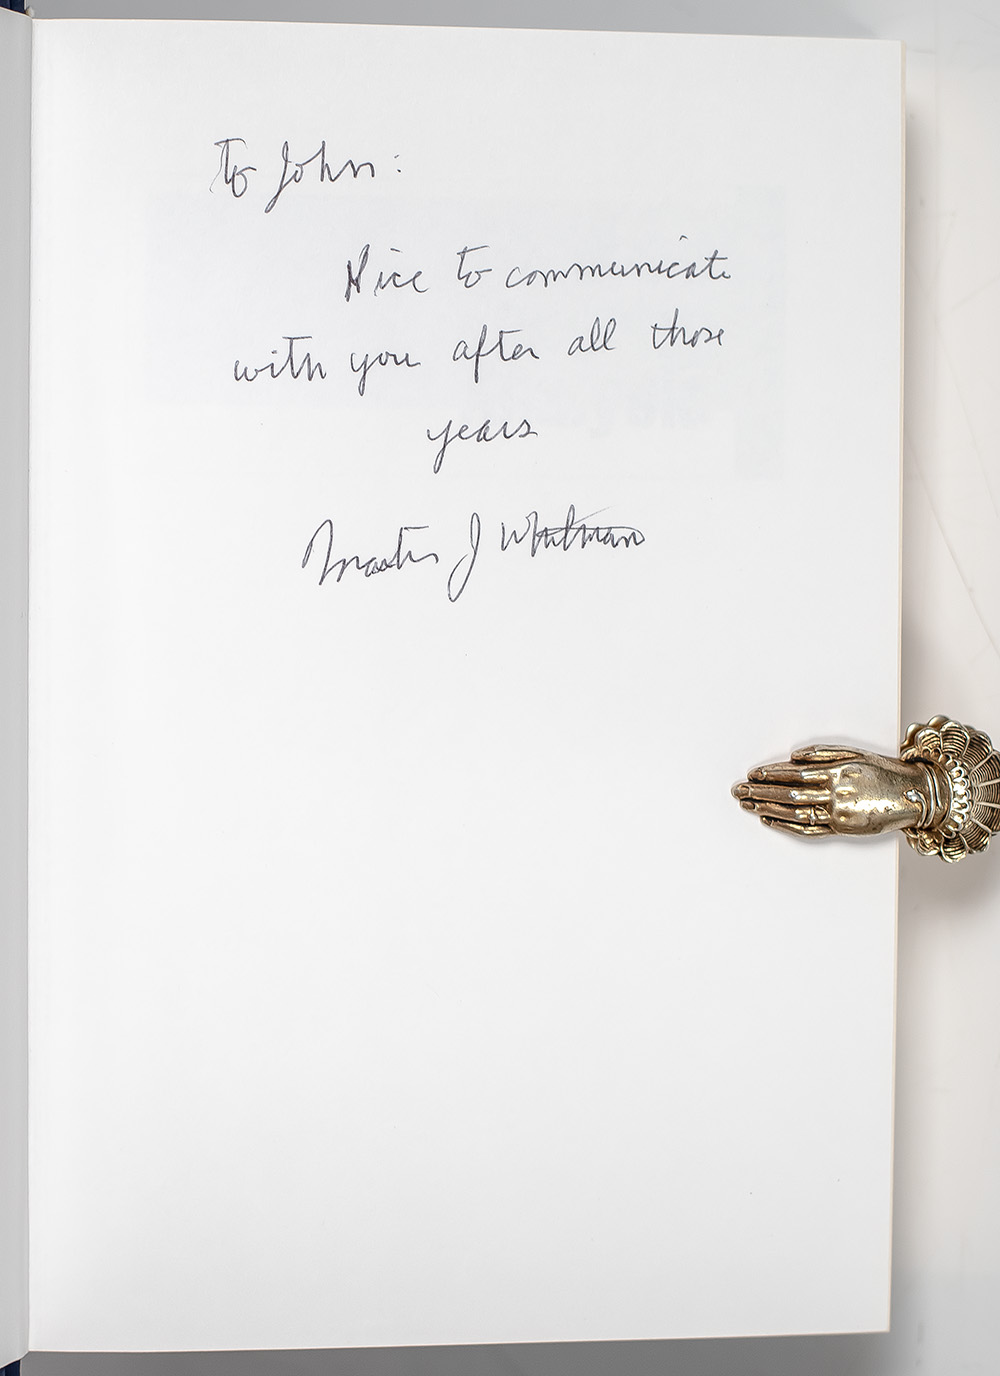 To John:
Nice to communicate
with you after all those
years
Martin J Whitman